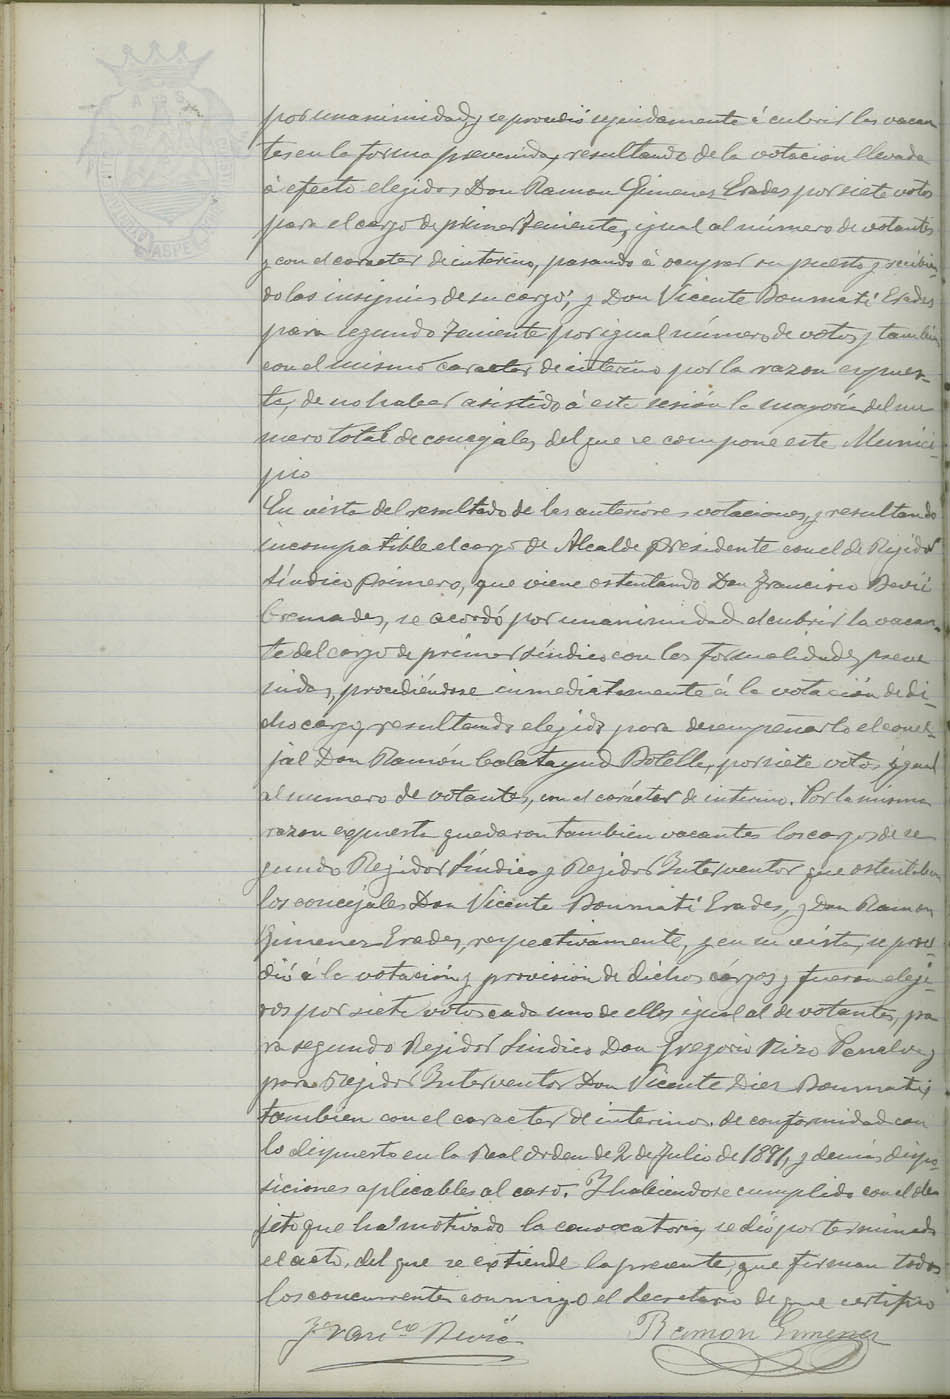 por unanimidad, y se procedió seguidamente á cubrir las vacan
tes en la forma prevenida, resultando de la votacion llevada
á efecto elegidos Don Ramon Gimenez Erades por siete votos
para el cargo de primer Teniente, igual al número de votantes
y con el caracter de interino, pasando á ocupar su puesto y recibien-
do las insignias de su cargo; y Don Vicente Boumatí Erades
para segundo Teniente por igual número de votos y tambien
con el mismo caracter de interino por la razon expues-
ta, de no haber asistido á esta sesión la mayoría del nu
mero total de concejales, del que se compone este Munici-
pio
En vista del resultado de las anteriores votaciones, y resultando
incompatible el cargo de Alcalde presidente con el de Rejidor
Síndico Primero, que viene ostentando Don Francisco Deviá
Cremades, se acordó por unanimidad el cubrir la vacan-
te del cargo de primer síndico con las formalidades preve
nidas, procediéndose inmediatamente á la votación de di-
cho cargo, resultando elejido para desempeñarlo el conce-
jal Don Ramón Calatayud Botella, por siete votos, ygual
al numero de votantes, con el carácter de interino. Por la misma
razon expuesta quedaron tambien vacantes los cargos de se
gundo Rejidor Síndico y Rejidor Interventor que ostentaban
los concejales Don Vicente Boumatí Erades, y Don Ramon
Gimenez Erades, respectivamente, y en su vista, se proce-
dió á la votación y provisión de dichos cargos y fueron eleji-
dos por siete votos cada uno de ellos igual al de votantes, pa
ra segundo Rejidor Sindico Don Gregorio Rizo Penalva y
para Rejidor Interventor Don Vicente Diez Boumatí,
tambien con el caracter de interinos, de conformidad con
lo dispuesto en la Real Orden de 2 de Julio de 1891, y demás dispo-
siciones aplicables al caso. Y habiendose cumplido con el ob
jeto que ha motivado la convocatoria, se dió por terminado
el acto, del que se extiende la presente, que firman todos
los concurrentes conmigo el Secretario de que certifico
Franco Deviá Ramon Gimenez